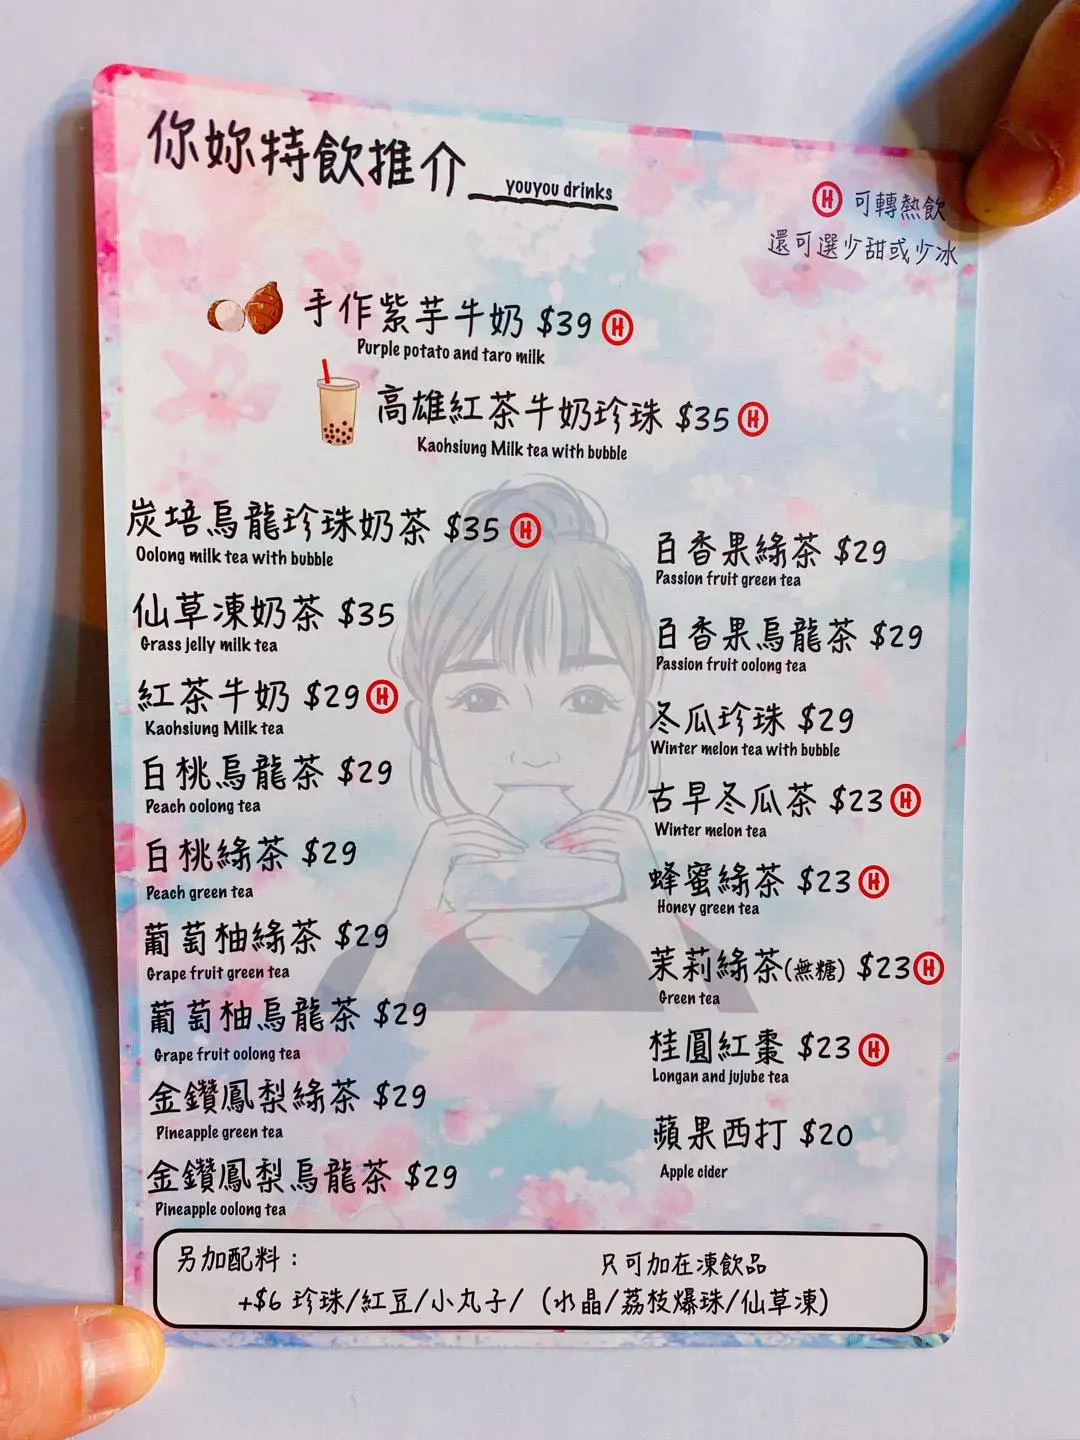 你妳特飲推介 youyou drinks
Ⓗ 可轉熱飲
還可選少甜或少冰
手作紫芋牛奶 $39 Ⓗ
Purple potato and taro milk
高雄紅茶牛奶珍珠 $35 Ⓗ
Kaohsiung Milk tea with bubble
炭培烏龍珍珠奶茶 $35 Ⓗ
Oolong milk tea with bubble
仙草凍奶茶 $35
Grass jelly milk tea
紅茶牛奶 $29 Ⓗ
Kaohsiung Milk tea
白桃烏龍茶 $29
Peach oolong tea
白桃綠茶 $29
Peach green tea
葡萄柚綠茶 $29
Grape fruit green tea
葡萄柚烏龍茶 $29
Grape fruit oolong tea
金鑽鳳梨綠茶 $29
Pineapple green tea
金鑽鳳梨烏龍茶 $29
Pineapple oolong tea
百香果綠茶 $29
Passion fruit green tea
百香果烏龍茶 $29
Passion fruit oolong tea
冬瓜珍珠 $29
Winter melon tea with bubble
古早冬瓜茶 $23 Ⓗ
Winter melon tea
蜂蜜綠茶 $23 Ⓗ
Honey green tea
茉莉綠茶(無糖) $23 Ⓗ
Green tea
桂圓紅棗 $23 Ⓗ
Longan and jujube tea
蘋果西打 $20
Apple cider
另加配料：
只可加在凍飲品
+$6 珍珠/紅豆/小丸子/（水晶/荔枝爆珠/仙草凍）